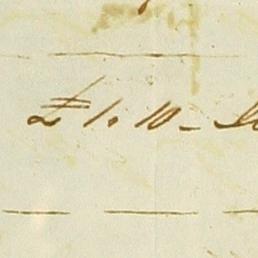 £ 1. 10 -